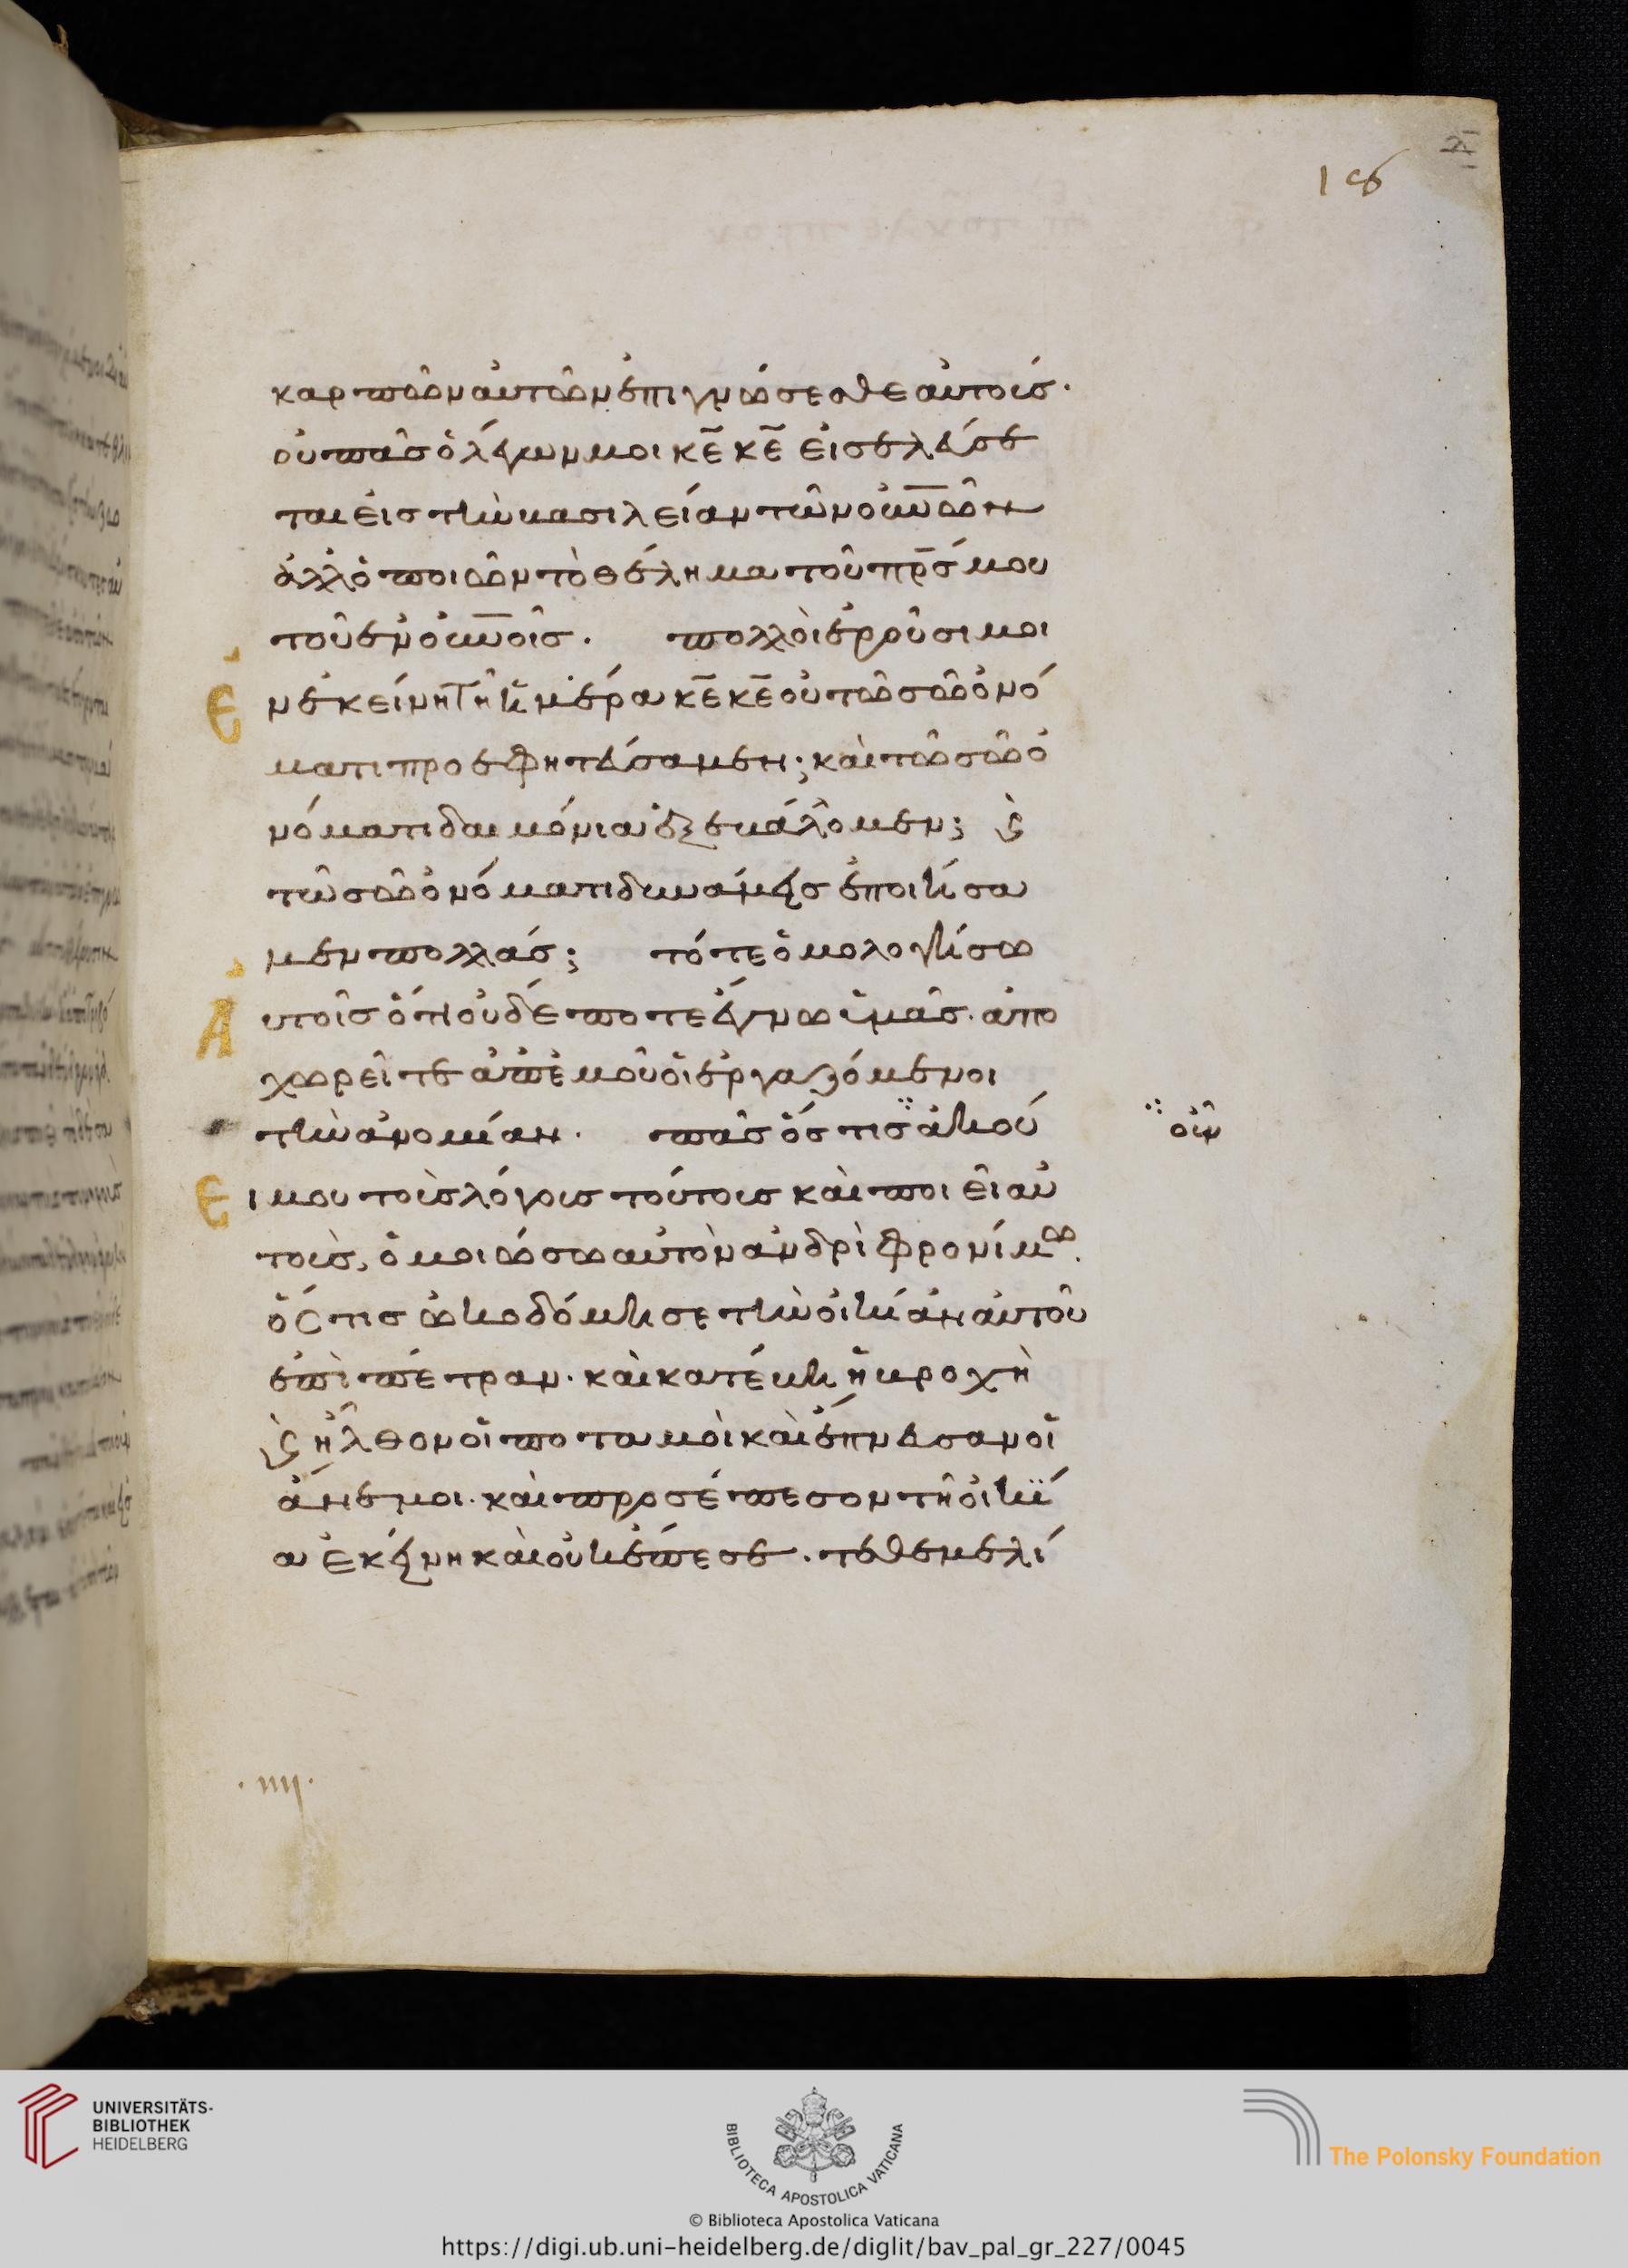 18
καρπῶν αὐτῶν ἐπιγνώσεσθε αὐτούς·
οὐ πᾶς ὁ λέγων μοι κ̅ε κ̅ε εἰσελεύσε
ται εἰς τὴν βασιλείαν τῶν οὐ̅ν̅ῶν
ἀλλ ὁ ποιῶν τὸ θέλημα τοῦ π̅ρ̅ς μου
τοῦ ἐν οὐ̅ν̅οῖς. πολλοὶ ἐροῦσι μοι
Ε
ν ἐκείνη τῆ ἡμέρα κ̅ε κ̅ε οὐ τῶ σῶ ὀνό
ματι προεφητεύσαμεν; καὶ τῶ σῶ ὀ
νόματι δαιμόνια ἐξεβάλομεν; ϗ
τῶ σῶ ὀνόματι δυνάμεις ἐποιήσα
μεν πολλάς; τότε ὁμολογήσω
Α
υτοῖς ὅτι οὐδέποτε ἔγνων ὑμᾶς. ἀπο
χωρεῖτε ἀπ ἐμοῦ οἱ ἐργαζόμενοι
τὴν ἀνομίαν. πᾶς ὅστις ἀκού
οὖν
Ε
ι μου τοὺς λόγους τούτους καὶ ποιεῖ αὐ
τοὺς, ὁμοιώσω αὐτὸν ἀνδρὶ φρονίμω.
ὅστις ὠκοδόμησε τὴν οἰκίαν αὐτοῦ
ἐπὶ πέτραν. καὶ κατέβη ἡ βροχὴ
ϗ ἦλθον οἱ ποταμοὶ καὶ ἔπνευσαν οἱ
ἄνεμοι. καὶ προσέπεσον τῆ οἰκί
α ἐκείνη καὶ οὐκ ἔπεσε. τεθεμελί
UNIVERSITÄTS-
BIBLIOTHEK
HEIDELBERG
BIBLIOTECA APOSTOLICA VATICANA
The Polonsky Foundation
© Biblioteca Apostolica Vaticana
https://digi.ub.uni-heidelberg.de/diglit/bav_pal_gr_227/0045